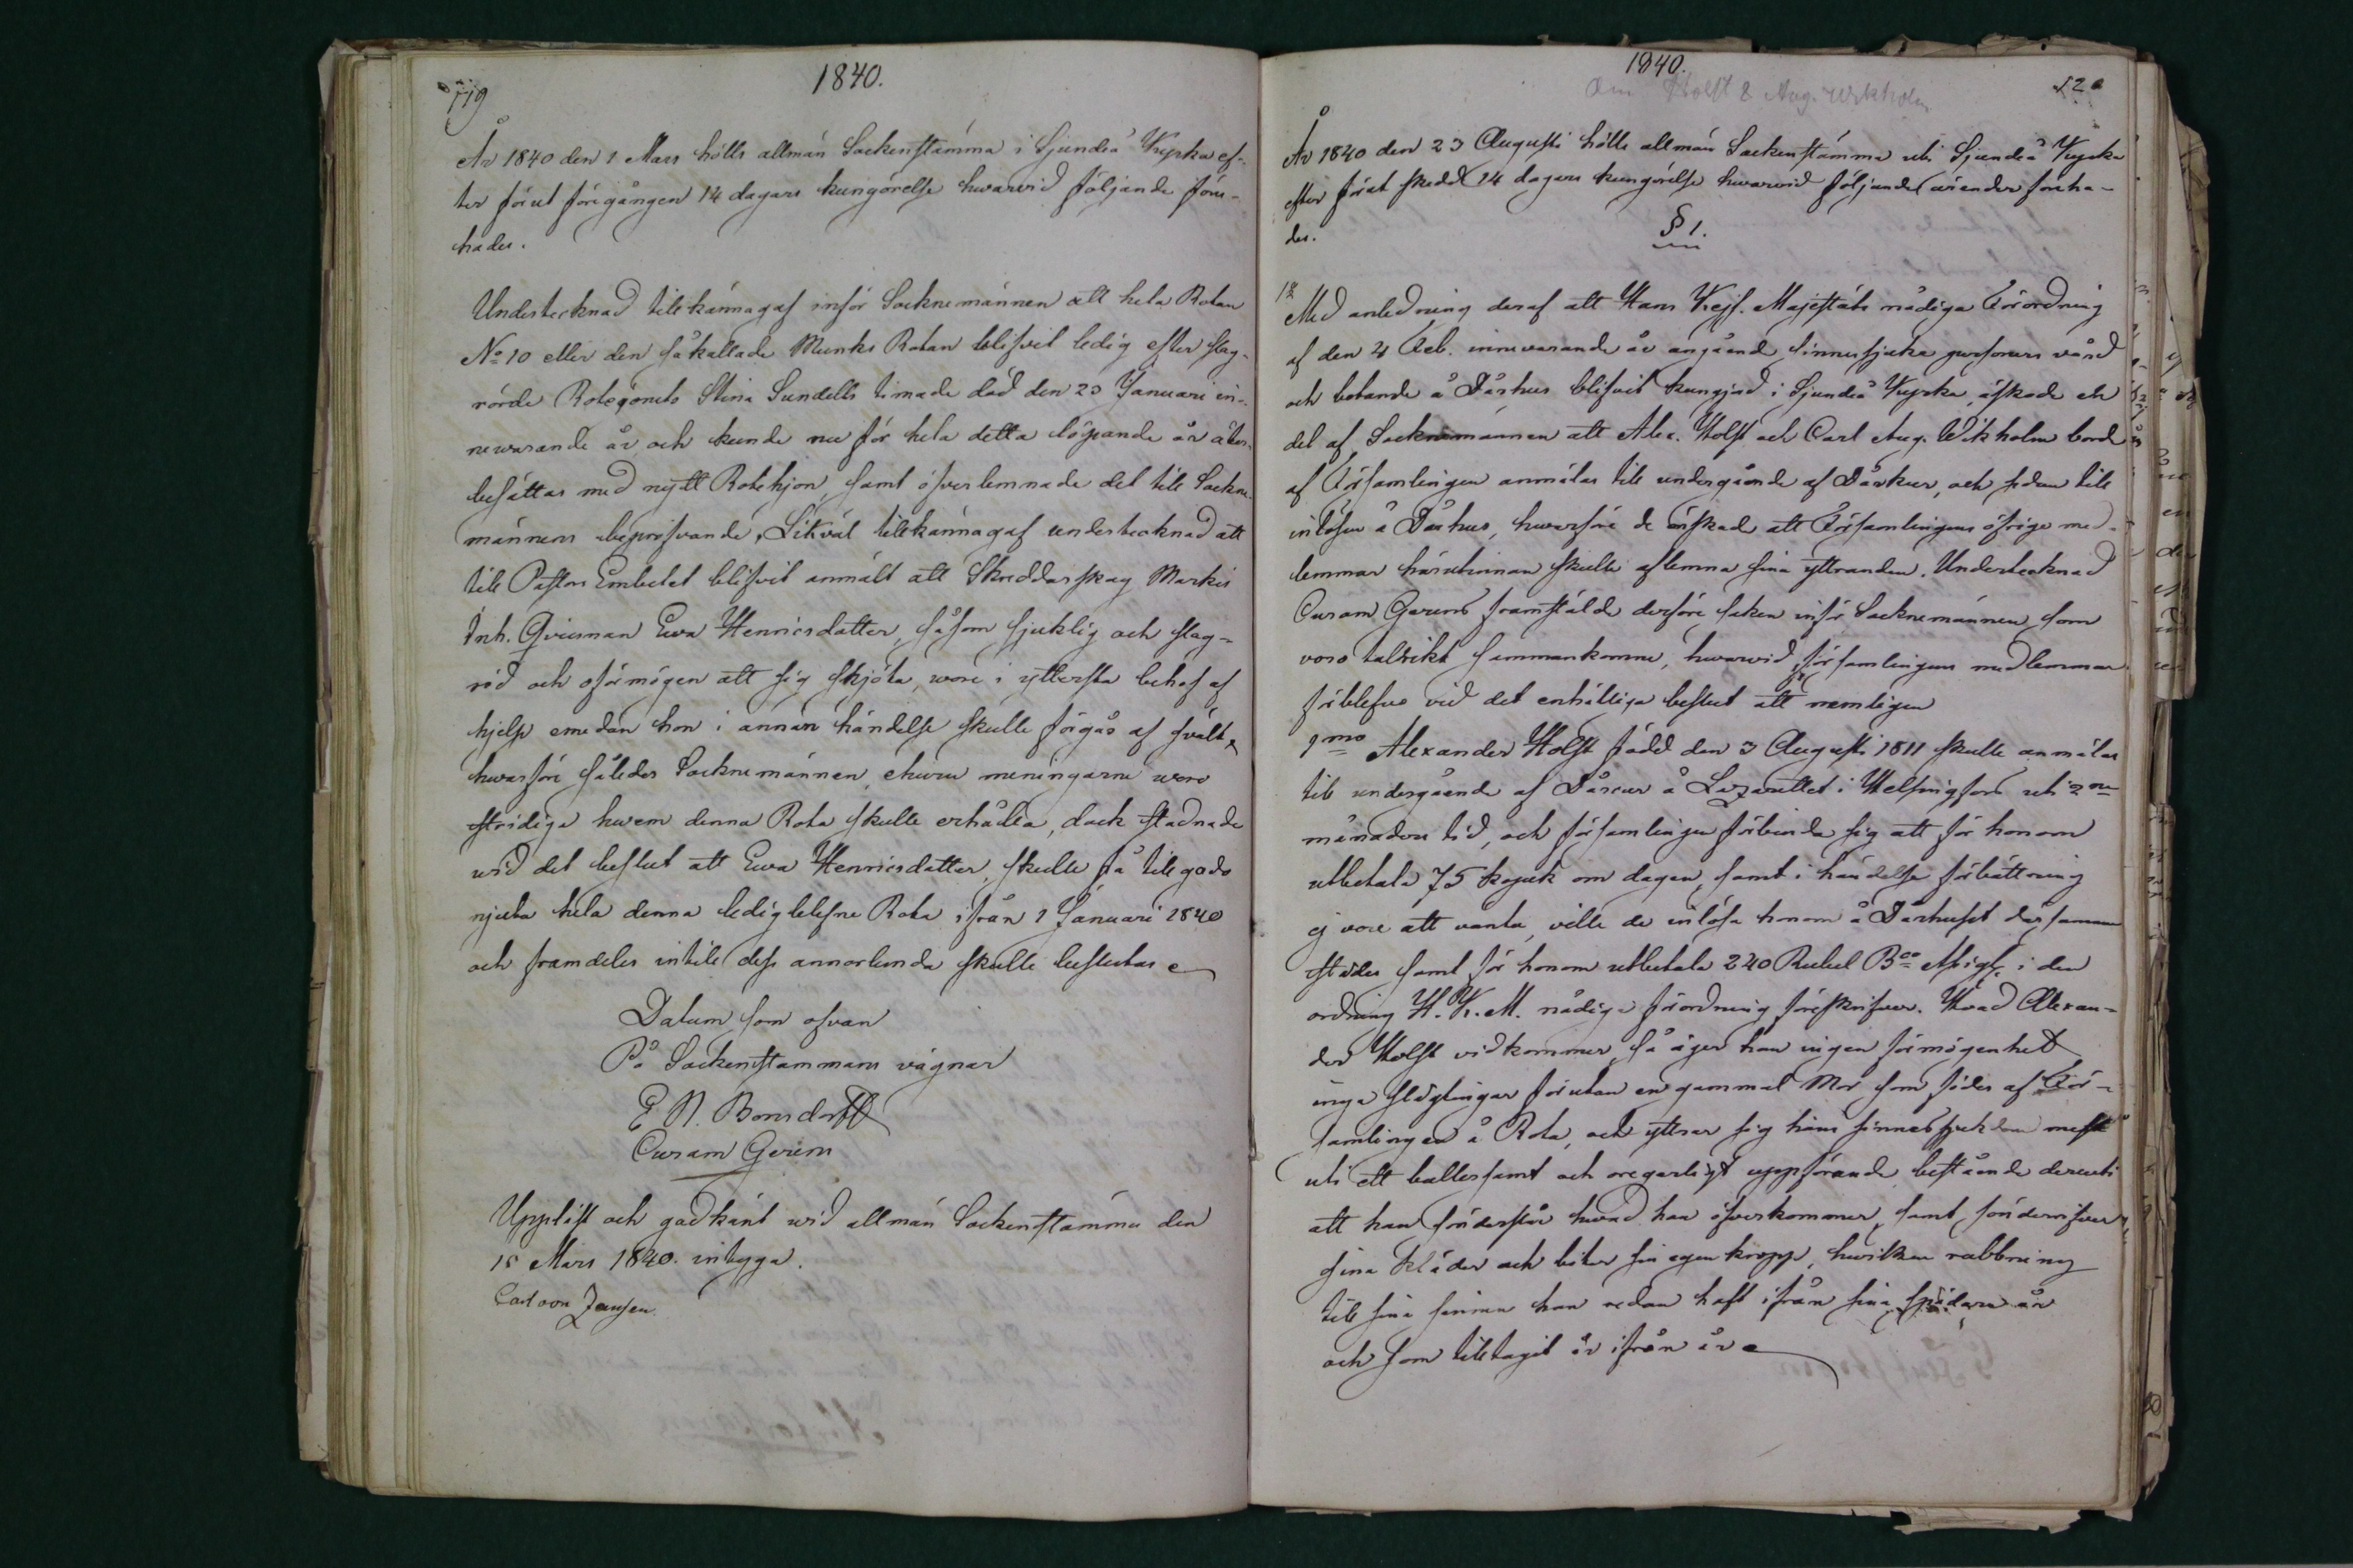 119
1840.
År 1840 den 1 Mars hölls allmän Sockenstämma i Sjundeå Kyrka ef-
ter förut föregången 14 dagars kungörelse hwarvid följande före-
hades.
Undertecknad tillkännagaf inför Socknemännen att hela Rotan
No 10 eller den såkallade Munks Rotan blifvit ledig efter slag-
rörde Rotegönets Stina Sundells timade död den 23 Januari in-
newarande år, och kunde nu för hela detta löpande år åter-
besättas med nytt Rotehjon, samt öfverlemnade det till Sockne-
männens beprofvande. Likväl tillkännagaf undertecknad att
till Pastors Embetet blifvit anmält att Skreddar pag Markis
Inh. Enkan Ewa Henricsdotter, såsom sjuklig och slag-
rörd och oförmögen att sig sköta, wore i yttersta behof af
hjelp emedan hon i annan händelse skulle förgås af svält,
hwarföre således Socknemännen, ehuru meningarne woro
stridiga hwem denna Rota skulle erhålla, dock stadnade
wid det beslut att Ewa Henricsdotter, skulle få till godo
njuta hela denna ledigblefne Rota ifrån 1 Januari 1840
och framdeles intill dess annorlunda skulle beslutas
Datum som ofvan
På Sockenstämmans vägnar
E N. Bonsdorff
Curam Gerens
Uppläst och godkänt wid allmän Sockenstämma den
15 Mars 1840. intyga.
Carl von Jensen.
1840.
Om Holst & Aug. Wikholm
120
År 1840 den 23 Augusti hölls allmän Sockenstämma uti Sjundeå Kyrka
efter förut skedd 14 dagars kungörelse hwarvid följande ärender föreha-
des.
§ 1.
Med anledning deraf att Hans Kejs. Majestäts nådiga Förordning
af den 4 Feb. innewarande år angående sinnessjuka personers vård
och botande å Dårhus blifvit kungjord i Sjundeå Kyrka, äskade en
del af Socknemännen att Alex. Holst och Carl Aug. Wikholm borde
af Församlingen anmälas till undergående af Dårkur, och sedan till
inlösen å Dårhus, hwarföre de önskade att Församlingens öfriga med-
lemmar härutinnan skulle aflemna sina yttranden. Undertecknad
Curam Gerens framstälde derföre saken inför Socknemännen, som
voro talrikt sammankomne, hwarvid församlingens medlemmar
förblefvo vid det enhälliga beslut att nemligen
1mo Alexander Holst född den 3 Augusti 1811 skulle anmälas
till undergående af Dårcur å Lazarettet i Helsingfors uti 2ne
månaders tid, och församlingen förbinda sig att för honom
utbetala 75 kopek om dagen, samt i händelse förbättring
ej vore att vänta, ville de inlösa honom å Dårhuset därsamma
städes samt för honom utbetala 240 Rubel Bco Assign. i den
ordning H. K. M. nådiga förordning föreskrifver. Hvad Alexan-
der Holst vidkommer, så äger han ingen förmögenhet
inga slägtingar förutan en gammal Mor som födes af För-
samlingen å Rota, och yttrar sig hans sinnessjukdom mest
uti ett bullersamt och oregerligt uppförande bestående deruti
att han sönderslår hwad han öfverkommer, samt sönderrifver
sina kläder och biter sin egen kropp, hwilken rubbning
till sina sinnen han redan haft ifrån sina spädare år
och som tilltagit år ifrån år